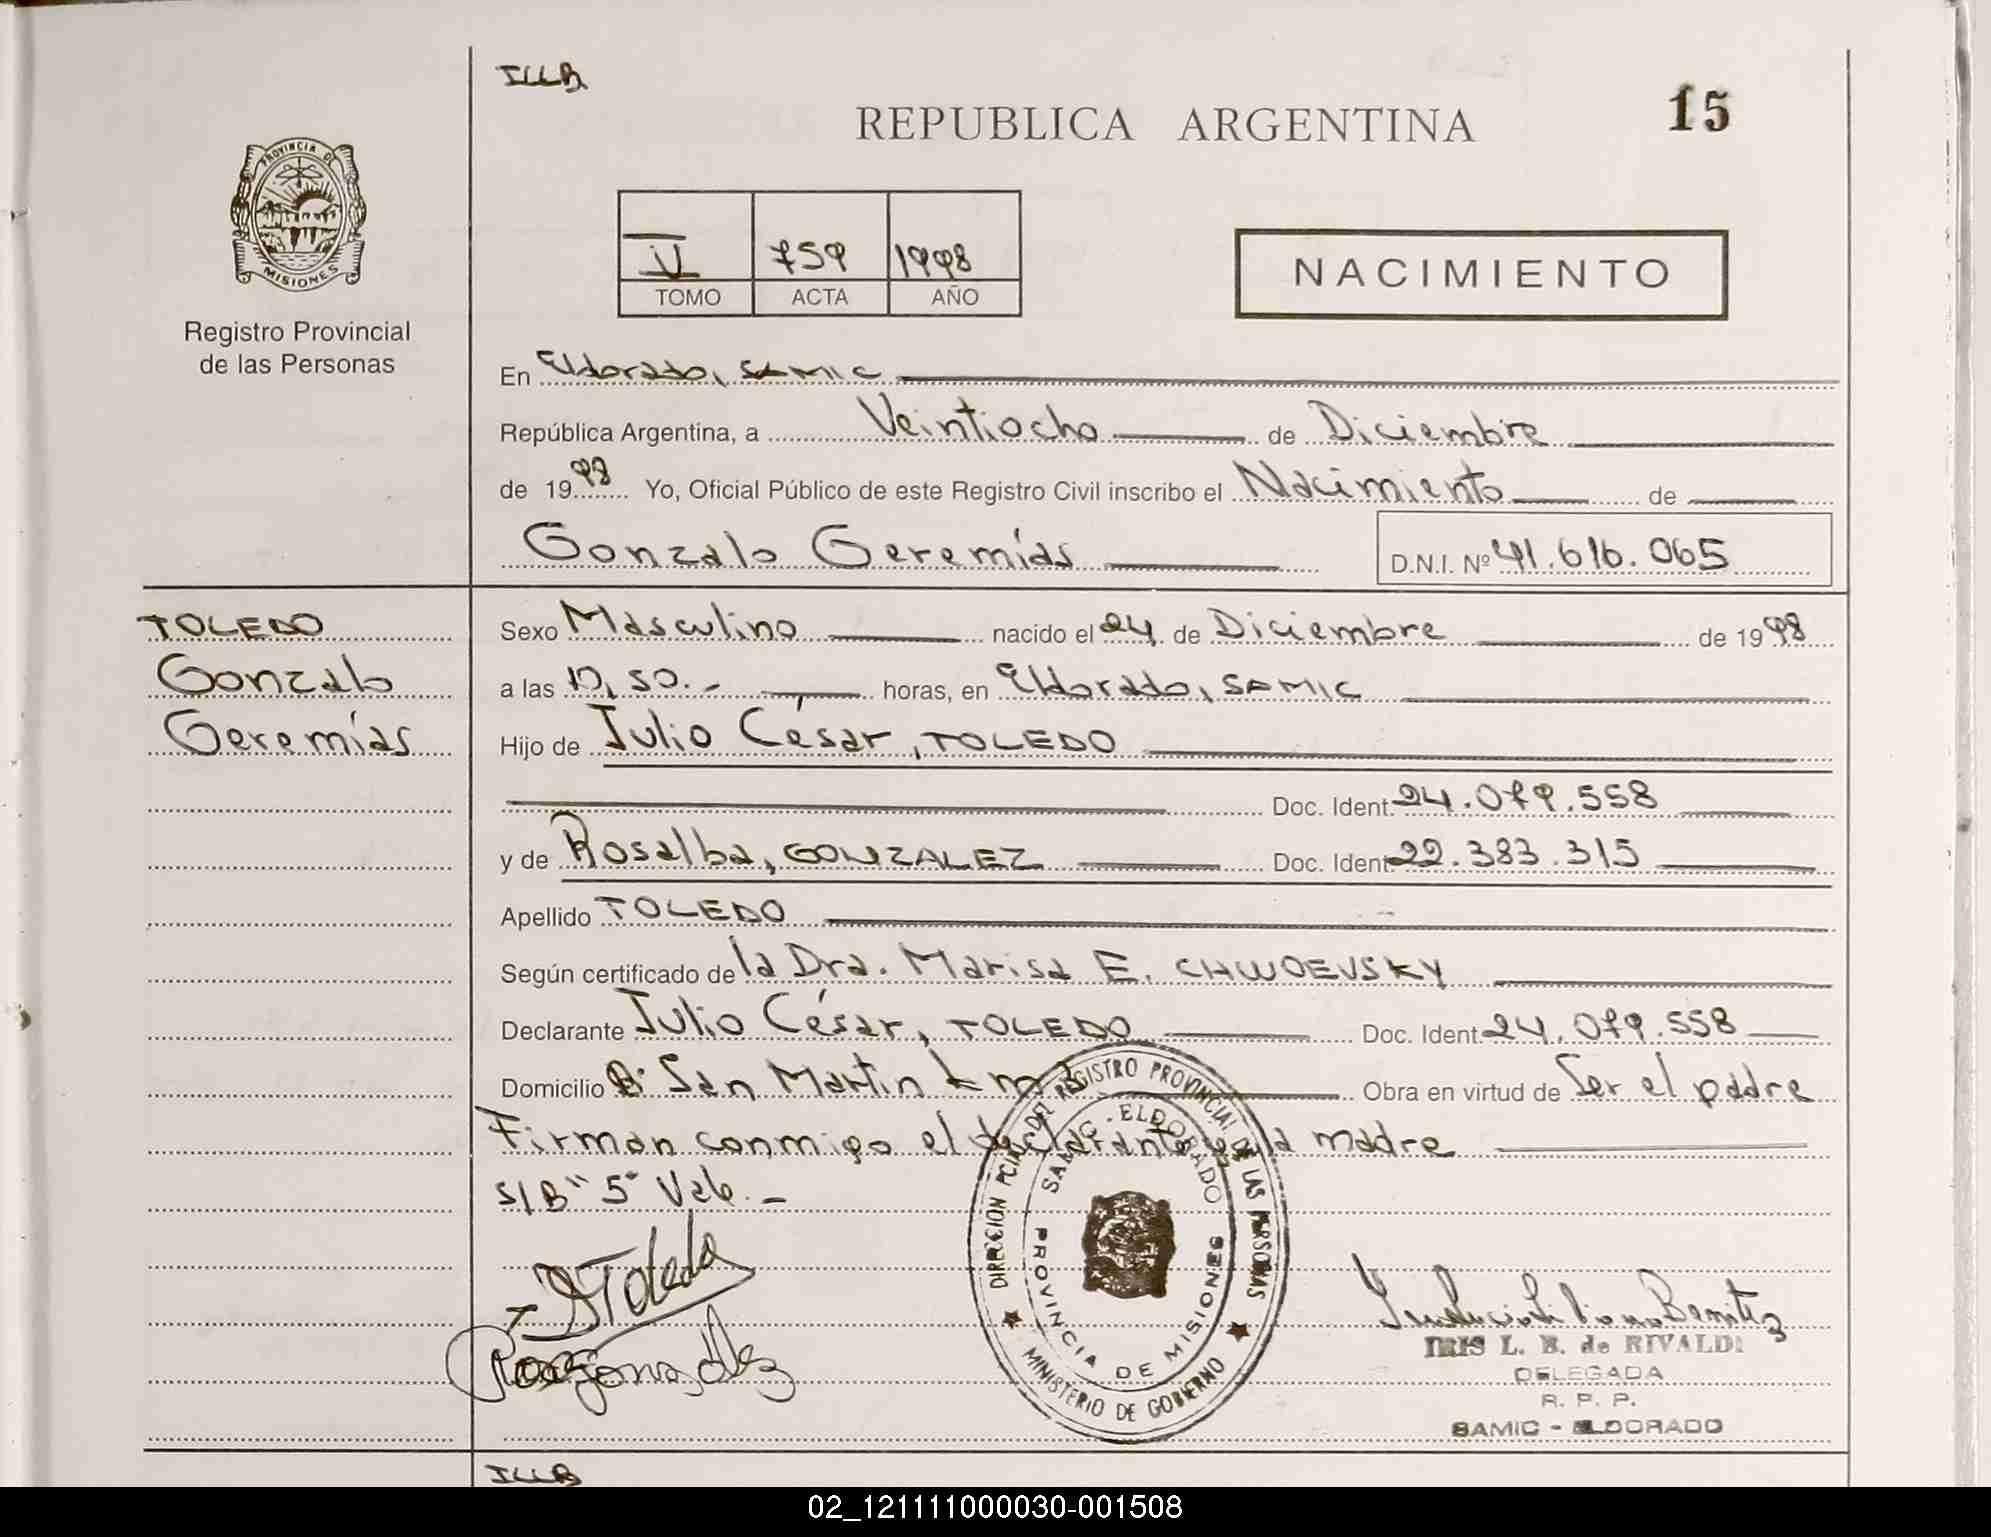 ILLB
REPUBLICA ARGENTINA
15
PROVINCIA DE
MISIONES
Registro Provincial
de las Personas
V 759 1998
TOMO ACTA AÑO
NACIMIENTO
En Eldorado, SAMIC
República Argentina, a Veintiocho de Diciembre
de 1998 Yo, Oficial Público de este Registro Civil inscribo el Nacimiento de
Gonzalo Geremías D.N.I. Nº 41.616.065
TOLEDO
Gonzalo
Geremías
Sexo Masculino nacido el 24 de Diciembre de 1998
a las horas, en Eldorado, SAMIC
Hijo de Julio César, TOLEDO
Doc. Ident. 24.079.558
y de Rosalba, GONZALEZ Doc. Ident. 22.383.315
Apellido TOLEDO
Según certificado de la Dra. Marisa E. CHWOEVSKY
Declarante Julio César, TOLEDO Doc. Ident. 24.079.558
Domicilio Bº San Martin Km 3 Obra en virtud de Ser el padre
Firman conmigo el declarante y la madre
S/B "5" Vale.-
Toledo
DIRECCION PCIAL. DEL REGISTRO PROVINCIAL DE LAS PERSONAS
SAMIC - ELDORADO
PROVINCIA DE MISIONES
MINISTERIO DE GOBIERNO
Benitez
IRIS L. B. de RIVALDI
DELEGADA
R. P. P.
SAMIC - ELDORADO
ILLB
02_121111000030-001508